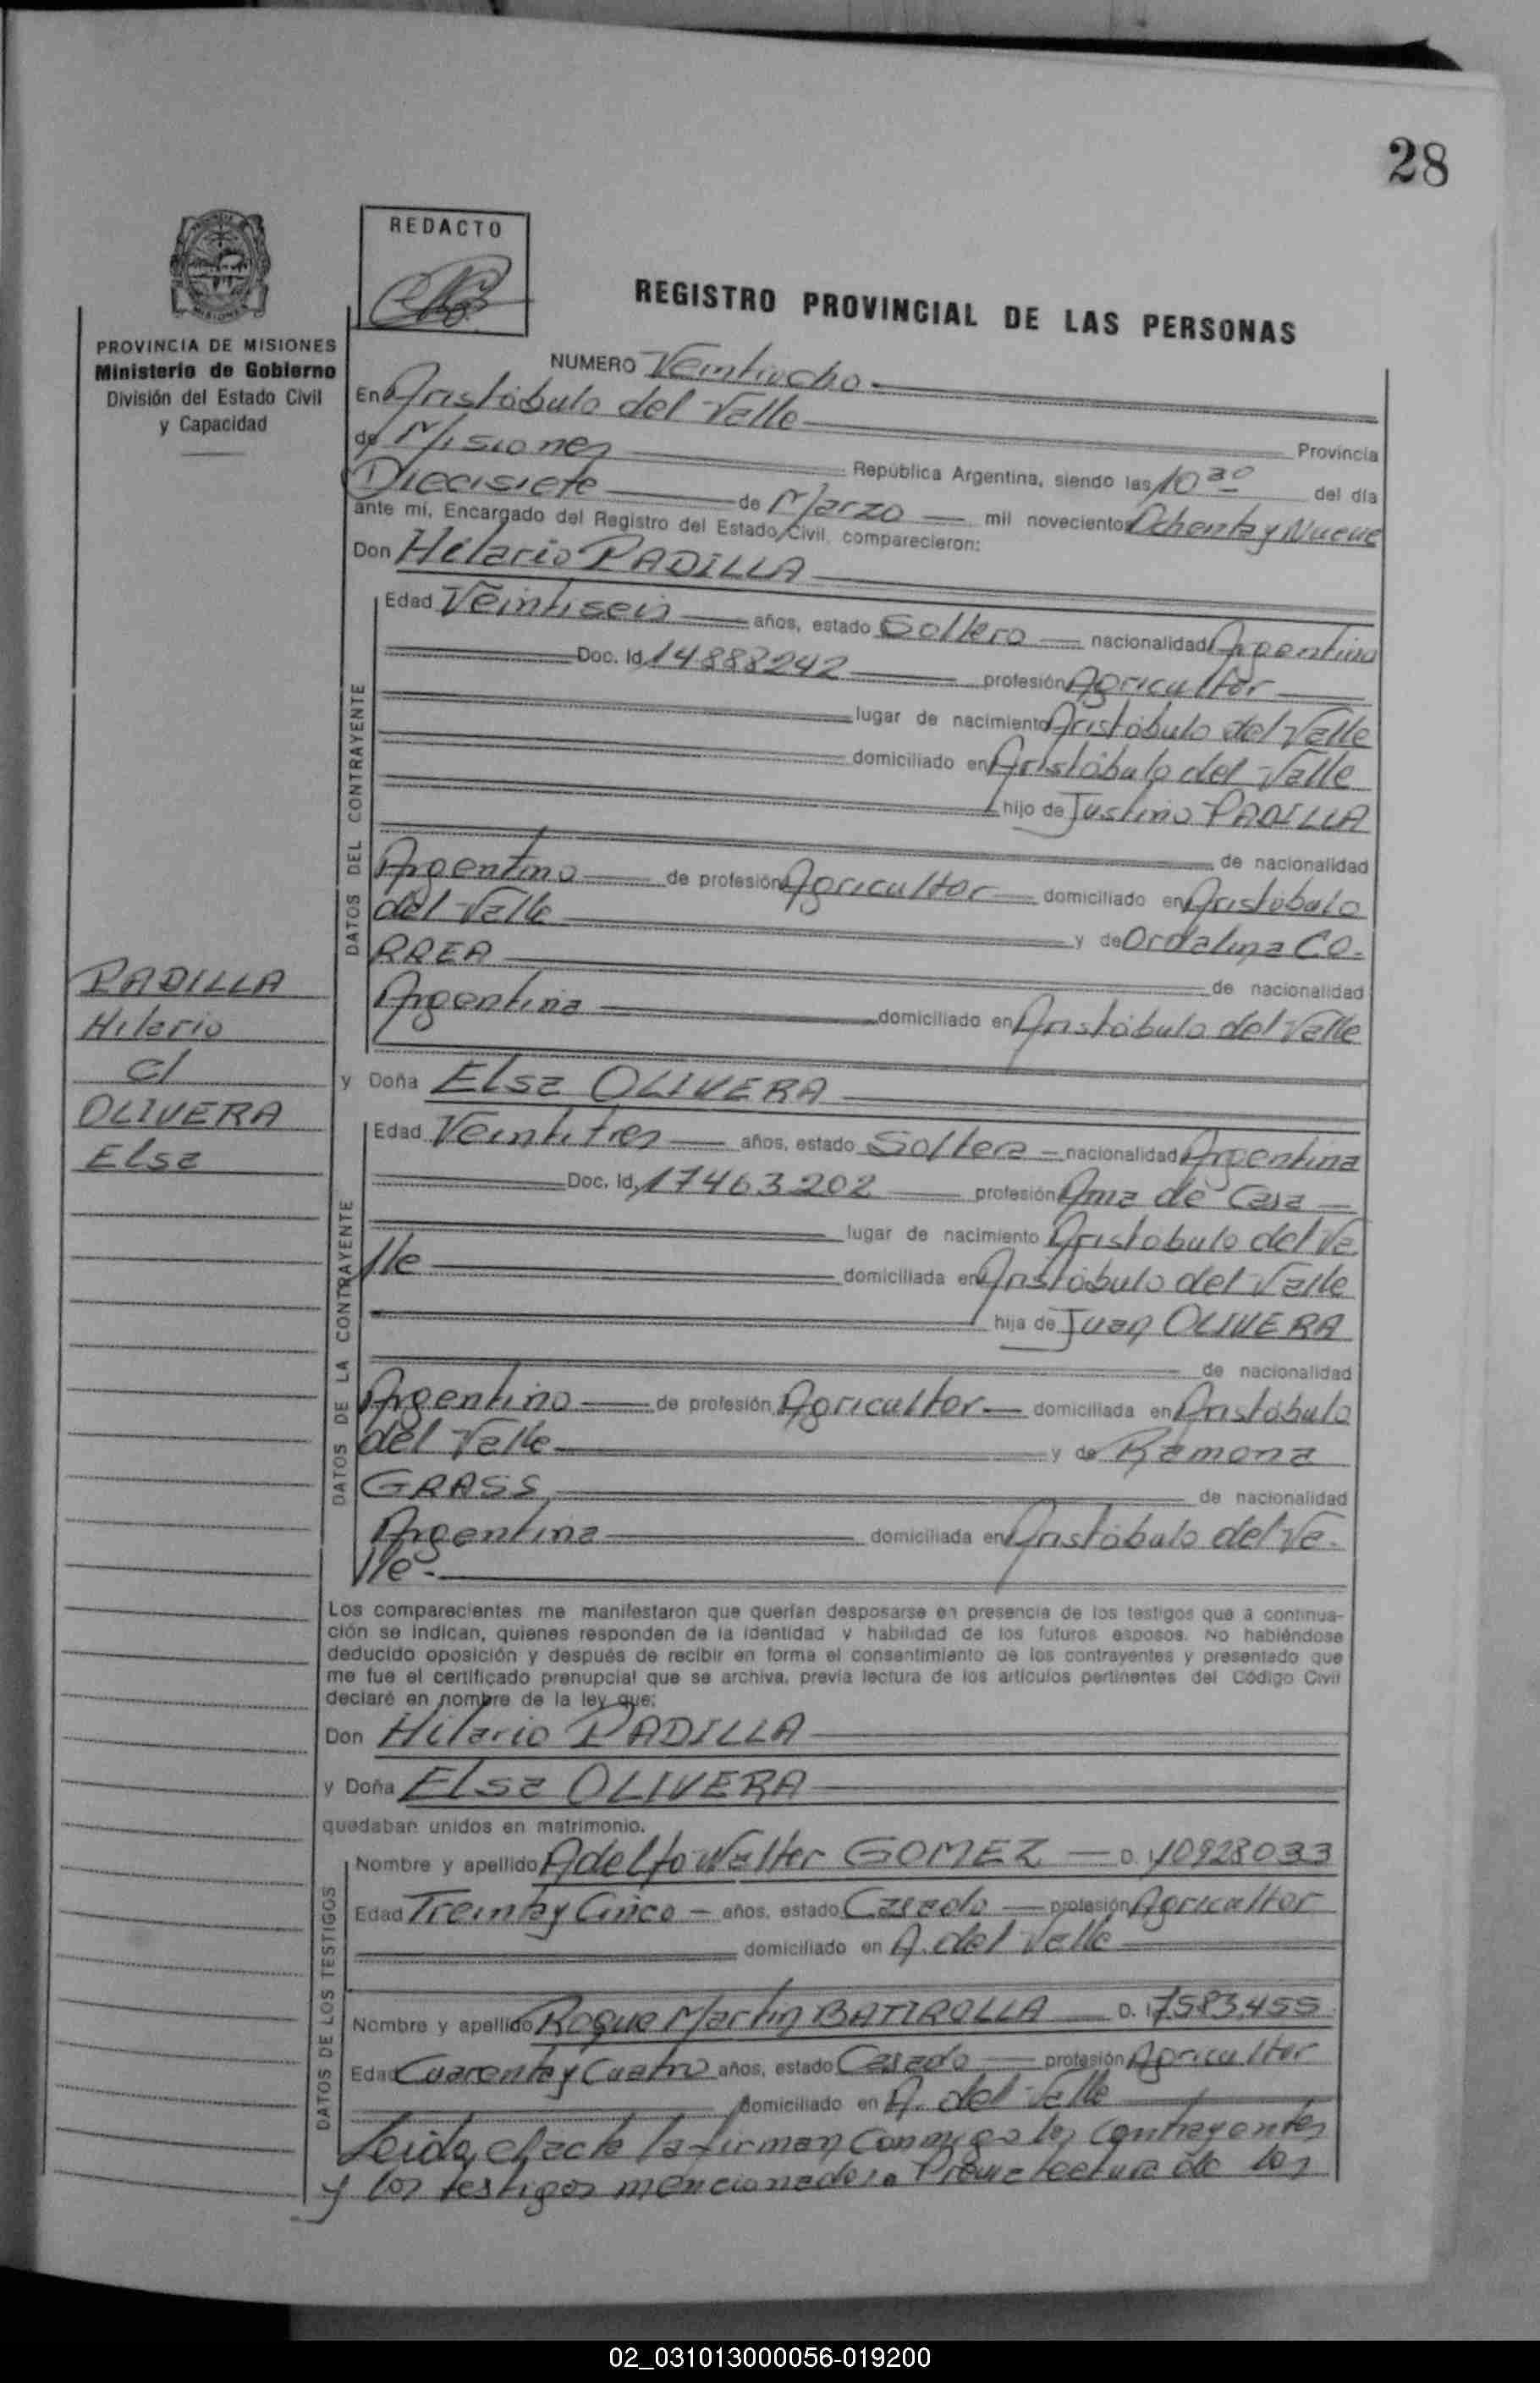 28
REDACTO
REGISTRO PROVINCIAL DE LAS PERSONAS
PROVINCIA DE MISIONES
Ministerio de Gobierno
División del Estado Civil
y Capacidad
NUMERO Veintiocho
En Aristóbulo del Valle Provincia
de Misiones República Argentina, siendo las 10 30 del día
Diecisiete de Marzo mil novecientos Ochenta y Nueve
ante mí, Encargado del Registro del Estado Civil, comparecieron:
Don Hilario PADILLA
DATOS DEL CONTRAYENTE
Edad Veintiseis años, estado Soltero nacionalidad Argentino
Doc. Id. 14888242 profesión Agricultor
lugar de nacimiento Aristóbulo del Valle
domiciliado en Aristóbulo del Valle
hijo de Justino PADILLA
de nacionalidad
Argentino de profesión Agricultor domiciliado en Aristóbulo
del Valle y de Ordalina CO-
RREA de nacionalidad
Argentina domiciliado en Aristóbulo del Valle
PADILLA
Hilario
c/
OLIVERA
Elsa
y Doña Elsa OLIVERA
DATOS DE LA CONTRAYENTE
Edad Veintitres años, estado Soltera nacionalidad Argentina
Doc. Id. 17463202 profesión Ama de Casa
lugar de nacimiento Aristobulo del Va
lle domiciliada en Aristóbulo del Valle
hija de Juan OLIVERA
de nacionalidad
Argentino de profesión Agricultor domiciliada en Aristóbulo
del Valle y de Ramona
GRASS de nacionalidad
Argentina domiciliada en Aristóbulo del Va-
lle.
Los comparecientes me manifestaron que querían desposarse en presencia de los testigos que a continua-
ción se indican, quienes responden de la identidad y habilidad de los futuros esposos. No habiéndose
deducido oposición y después de recibir en forma el consentimiento de los contrayentes y presentado que
me fue el certificado prenupcial que se archiva, previa lectura de los artículos pertinentes del Código Civil
declaré en nombre de la ley que:
Don Hilario PADILLA
y Doña Elsa OLIVERA
quedaban unidos en matrimonio.
DATOS DE LOS TESTIGOS
Nombre y apellido Adelfo Walter GOMEZ D. I. 10928033
Edad Treinta y Cinco años, estado Casado profesión Agricultor
domiciliado en A. del Valle
Nombre y apellido Roque Martin BATIROLLA D. I. 7.583.455
Edad Cuarenta y Cuatro años, estado Casado profesión Agricultor
domiciliado en A. del Valle
Leida el acta la firman conmigo los contrayentes
y los testigos mencionados. Previa lectura de los
02_031013000056-019200